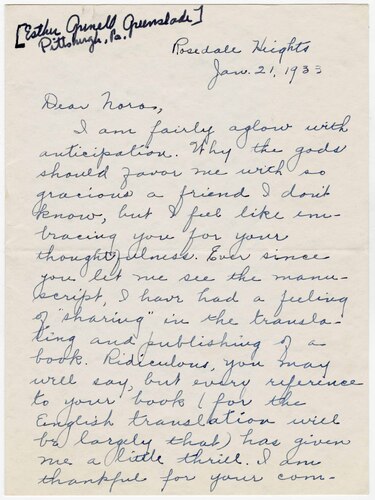 [Esther Grinell Greenslade]
Pittsburgh, Pa.
Rosedale Heights
Jan. 21, 1933
Dear Noros,
I am fairly aglow with
anticipation. Why the gods
should favor me with so
gracious a friend I don't
know, but I feel like em-
bracing you for your
thoughtfulness. Ever since
you let me see the manu-
script, I have had a feeling
of "sharing" in the transla-
ting and publishing of a
book. Ridiculous, you may
well say, but every reference
to your book (for the
English translation will
be largely that) has given
me a little thrill. I am
thankful for your com-